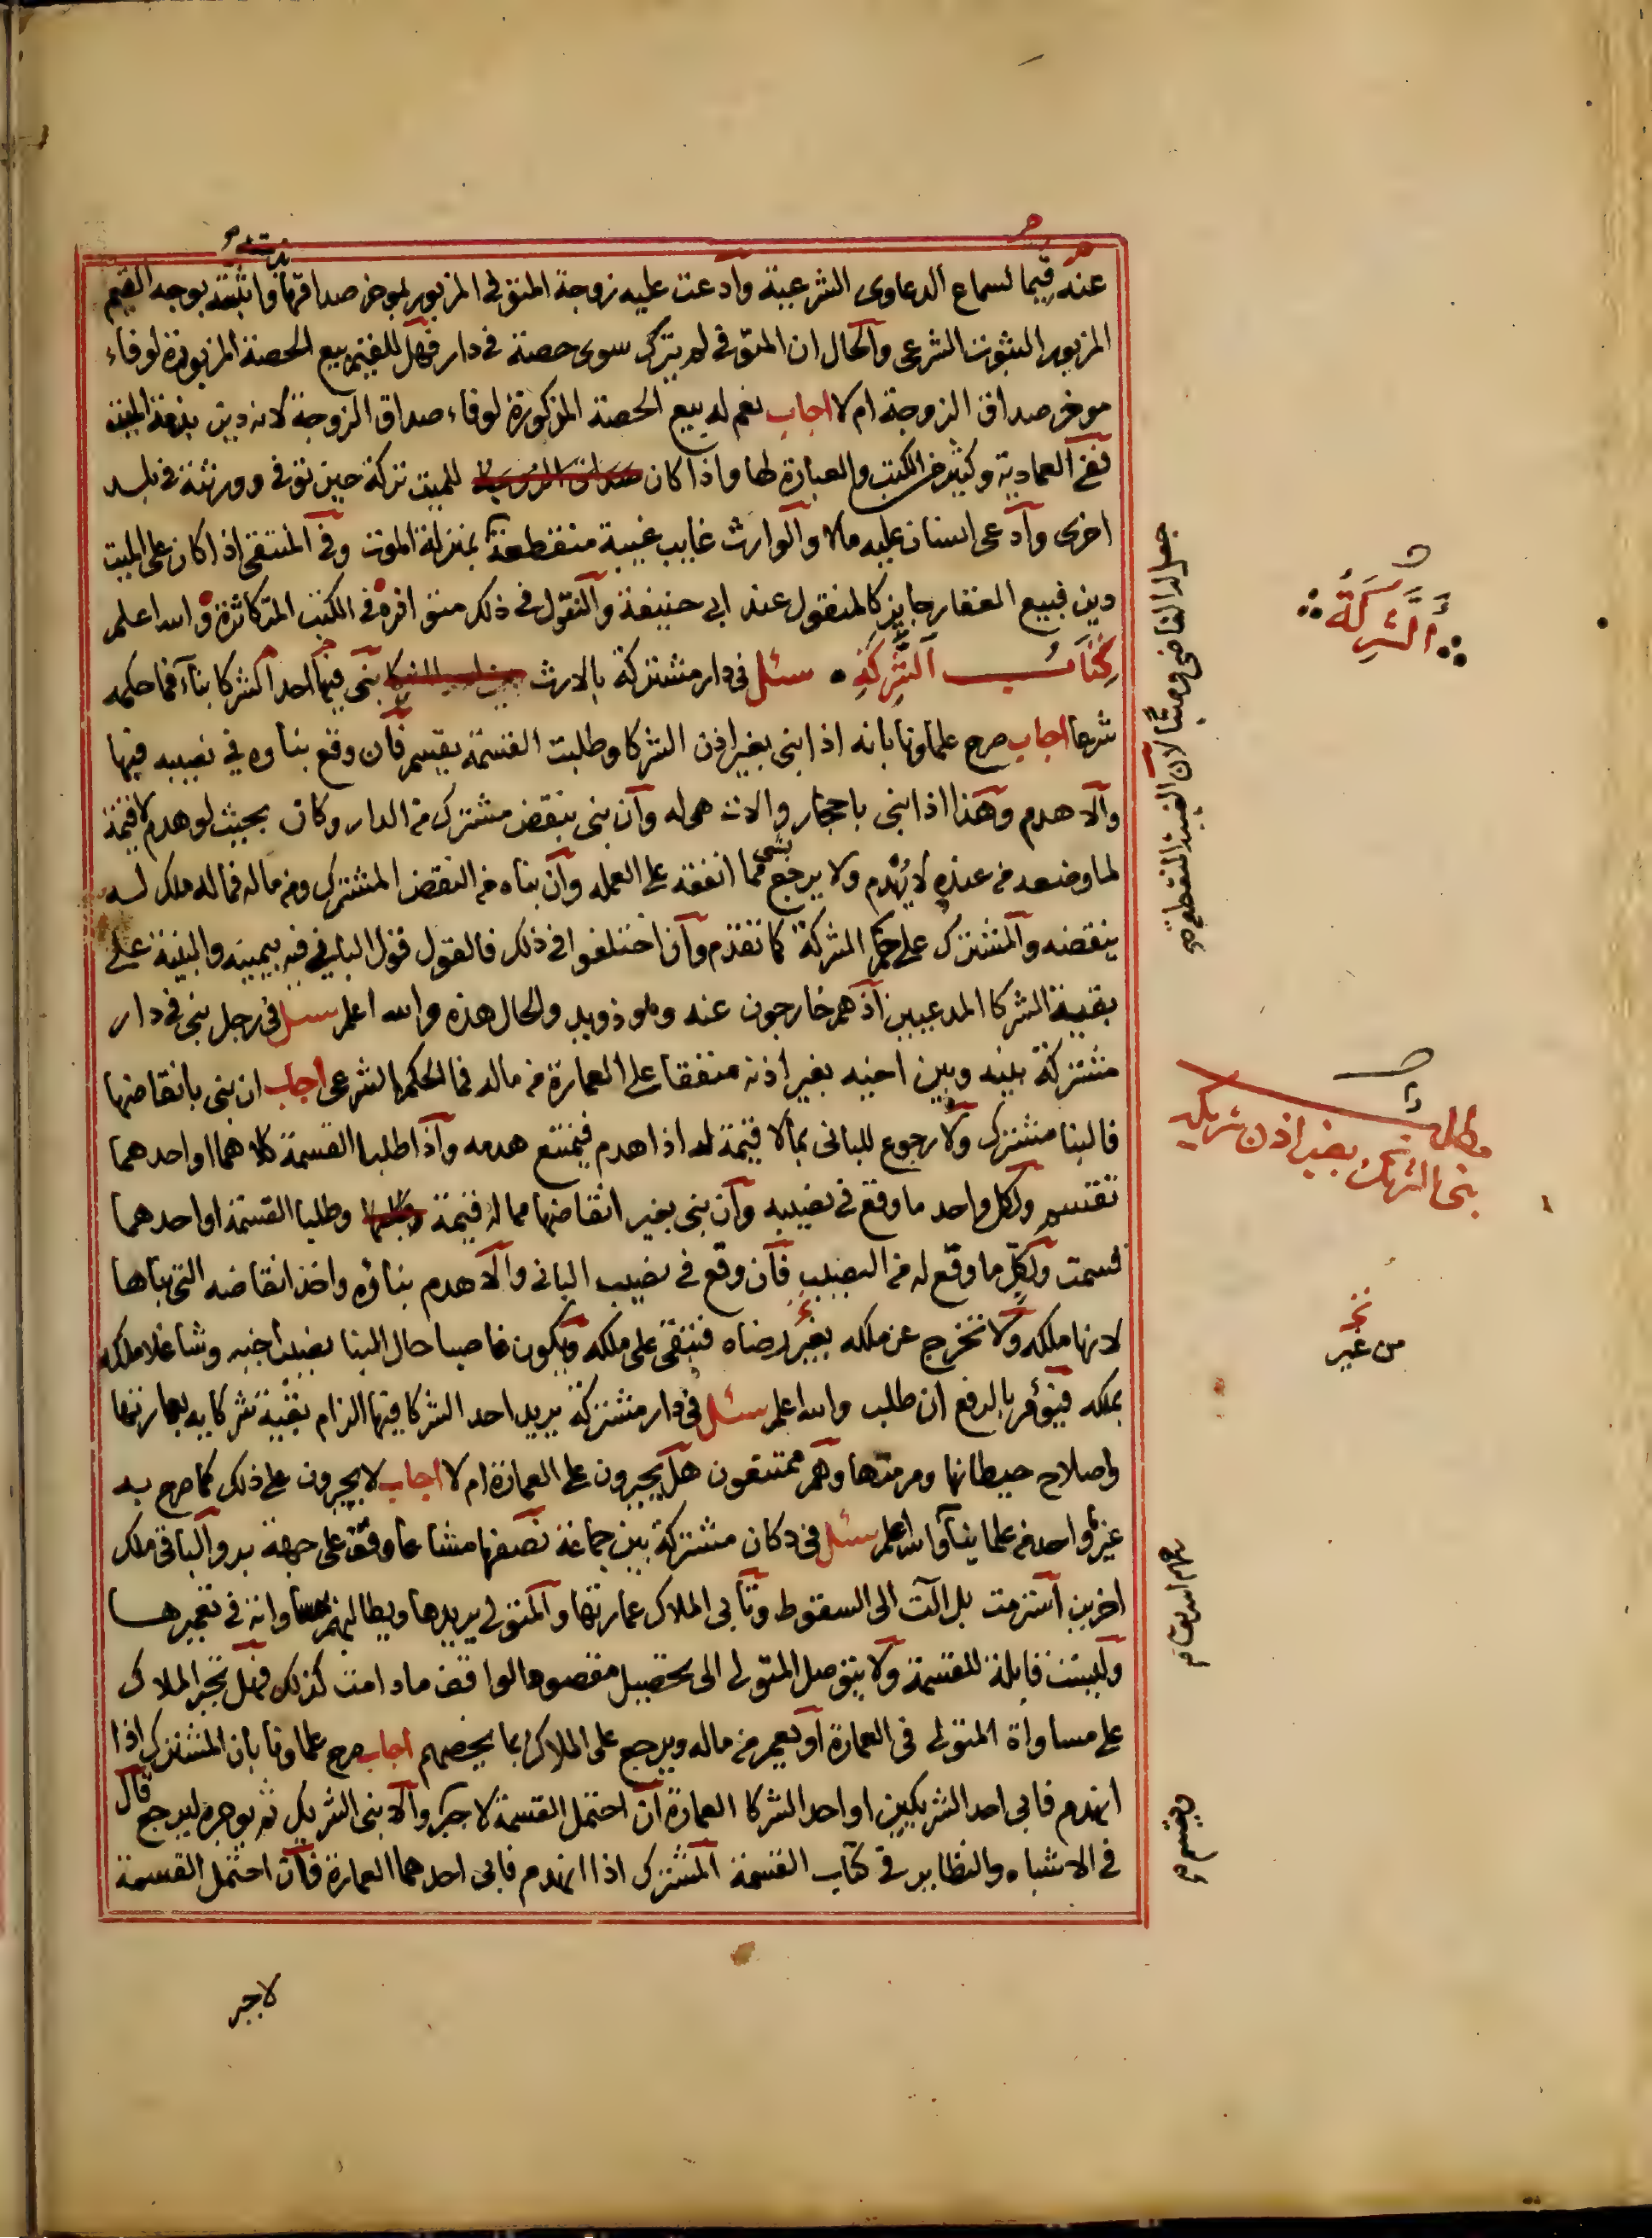 عنه قيما لسماع الدعاوى الشرعية وادعت عليه زوجة المتوفى المزبور بموخر صداقها واثبتته بوجه القيم
المزبور الثبوت الشرعى والحال ان المتوفى لم يترك سوى حصة فى دار فهل للقيم بيع الحصة المزبورة لوفاء
موخر صداق الزوجة ام لا اجاب نعم له بيع الحصة المذكورة لوفاء صداق الزوجة لانه دين بذمة الميت
ففى العمادية وكثير من الكتب والعبارة لها واذا كان للميت تركة حين توفى وورثته فى بلد
اخرى وادعى انسان عليه مالا والوارث غايب غيبة منقطعة بمنزلة الموت وفى المنتقى اذا كان على الميت
دين فبيع العقار جايز كالمنقول عند ابى حنيفة والنقول فى ذلك متوافرة فى الكتب المتكاثرة والله اعلم
كتاب الشركة سئل فى دار مشتركة بالارث بنى فيها احد الشركا بناء فما حكمه
شرعا اجاب صرح علماونا بانه اذا بنى بغير اذن الشركا وطلبت القسمة يقسم فان وقع بناوه فى نصيبه فبها
والا هدم وهذا اذا بنى باحجار والات هى له وان بنى بنقض مشترك من الدار وكان بحيث لو هدم لا قيمة
لما وضعه من عنده لا يهدم ولا يرجع بشى مما انفقه على العمله وان بناه من النقض المشترك ومن ماله فما له ملك له
ينقضه والمشترك على حكم الشركة كما تقدم وان اختلفوا فى ذلك فالقول قول البانى فيه بيمينه والبينة على
بقية الشركا المدعيين اذ هم خارجون عنه وهو ذو يد والحال هذه والله اعلم سئل فى رجل بنى فى دار
مشتركة بينه وبين اخيه بغير اذنه منفقا على العمارة من ماله فما الحكم الشرعى اجاب ان بنى بانقاضها
فالبنا مشترك ولا رجوع للبانى بما لا قيمة له اذا هدم فيمتنع هدمه واذا طلبا القسمة كلاهما او احدهما
تقتسم ولكل واحد ما وقع فى نصيبه وان بنى بغير انقاضها مما له قيمة وطلبا القسمة او احدهما
قسمت ولكل ما وقع له من النصيب فان وقع فى نصيب البانى والا هدم بناؤه واخذ انقاضه التى بناها
لانها ملكه ولا تخرج عن ملكه بغير رضاه فتبقى على ملكه ويكون غاصبا حال البنا نصيب اخيه وشاغلا ملكه
بملكه فيؤمر بالرفع ان طلب والله اعلم سئل فى دار مشتركة يريد احد الشركا فيها الزام بقية شركايه بعمارتها
واصلاح حيطانها ومرمتها وهم ممتنعون هل يجبرون على العمارة ام لا اجاب لا يجبرون على ذلك كما صرح به
غير واحد من علماينا والله اعلم سئل فى دكان مشتركة بين جماعة نصفها مشاعا وقف على جهة بر والباقى ملك
اخرين استرمت بل الت الى السقوط وتابى الملاك عمارتها والمتولى يريدها ويطالبهم فى تعميرها
وليست قابلة للقسمة ولا يتوصل المتولى الى تحصيل مقصود الواقف ما دامت كذلك فهل تجبر الملاك
على مساواة المتولى فى العمارة او يعمر من ماله ويرجع على الملاك بما يخصهم اجاب صرح علماونا بان المشترك اذا
انهدم فابى احد الشريكين او احد الشركا العمارة ان احتمل القسمة لا جبر والا بنى الشريك ثم يوجره ليرجع قال
فى الاشباه والنظاير فى كتاب القسمة المشترك اذا انهدم فابى احدهما العمارة فان احتمل القسمة
لا جبر
جعل القاضى وصيا لان الغيبة المنقطعة صح
الشركة
مطلب
بنى الشريك بغير اذن شريكه
من غير